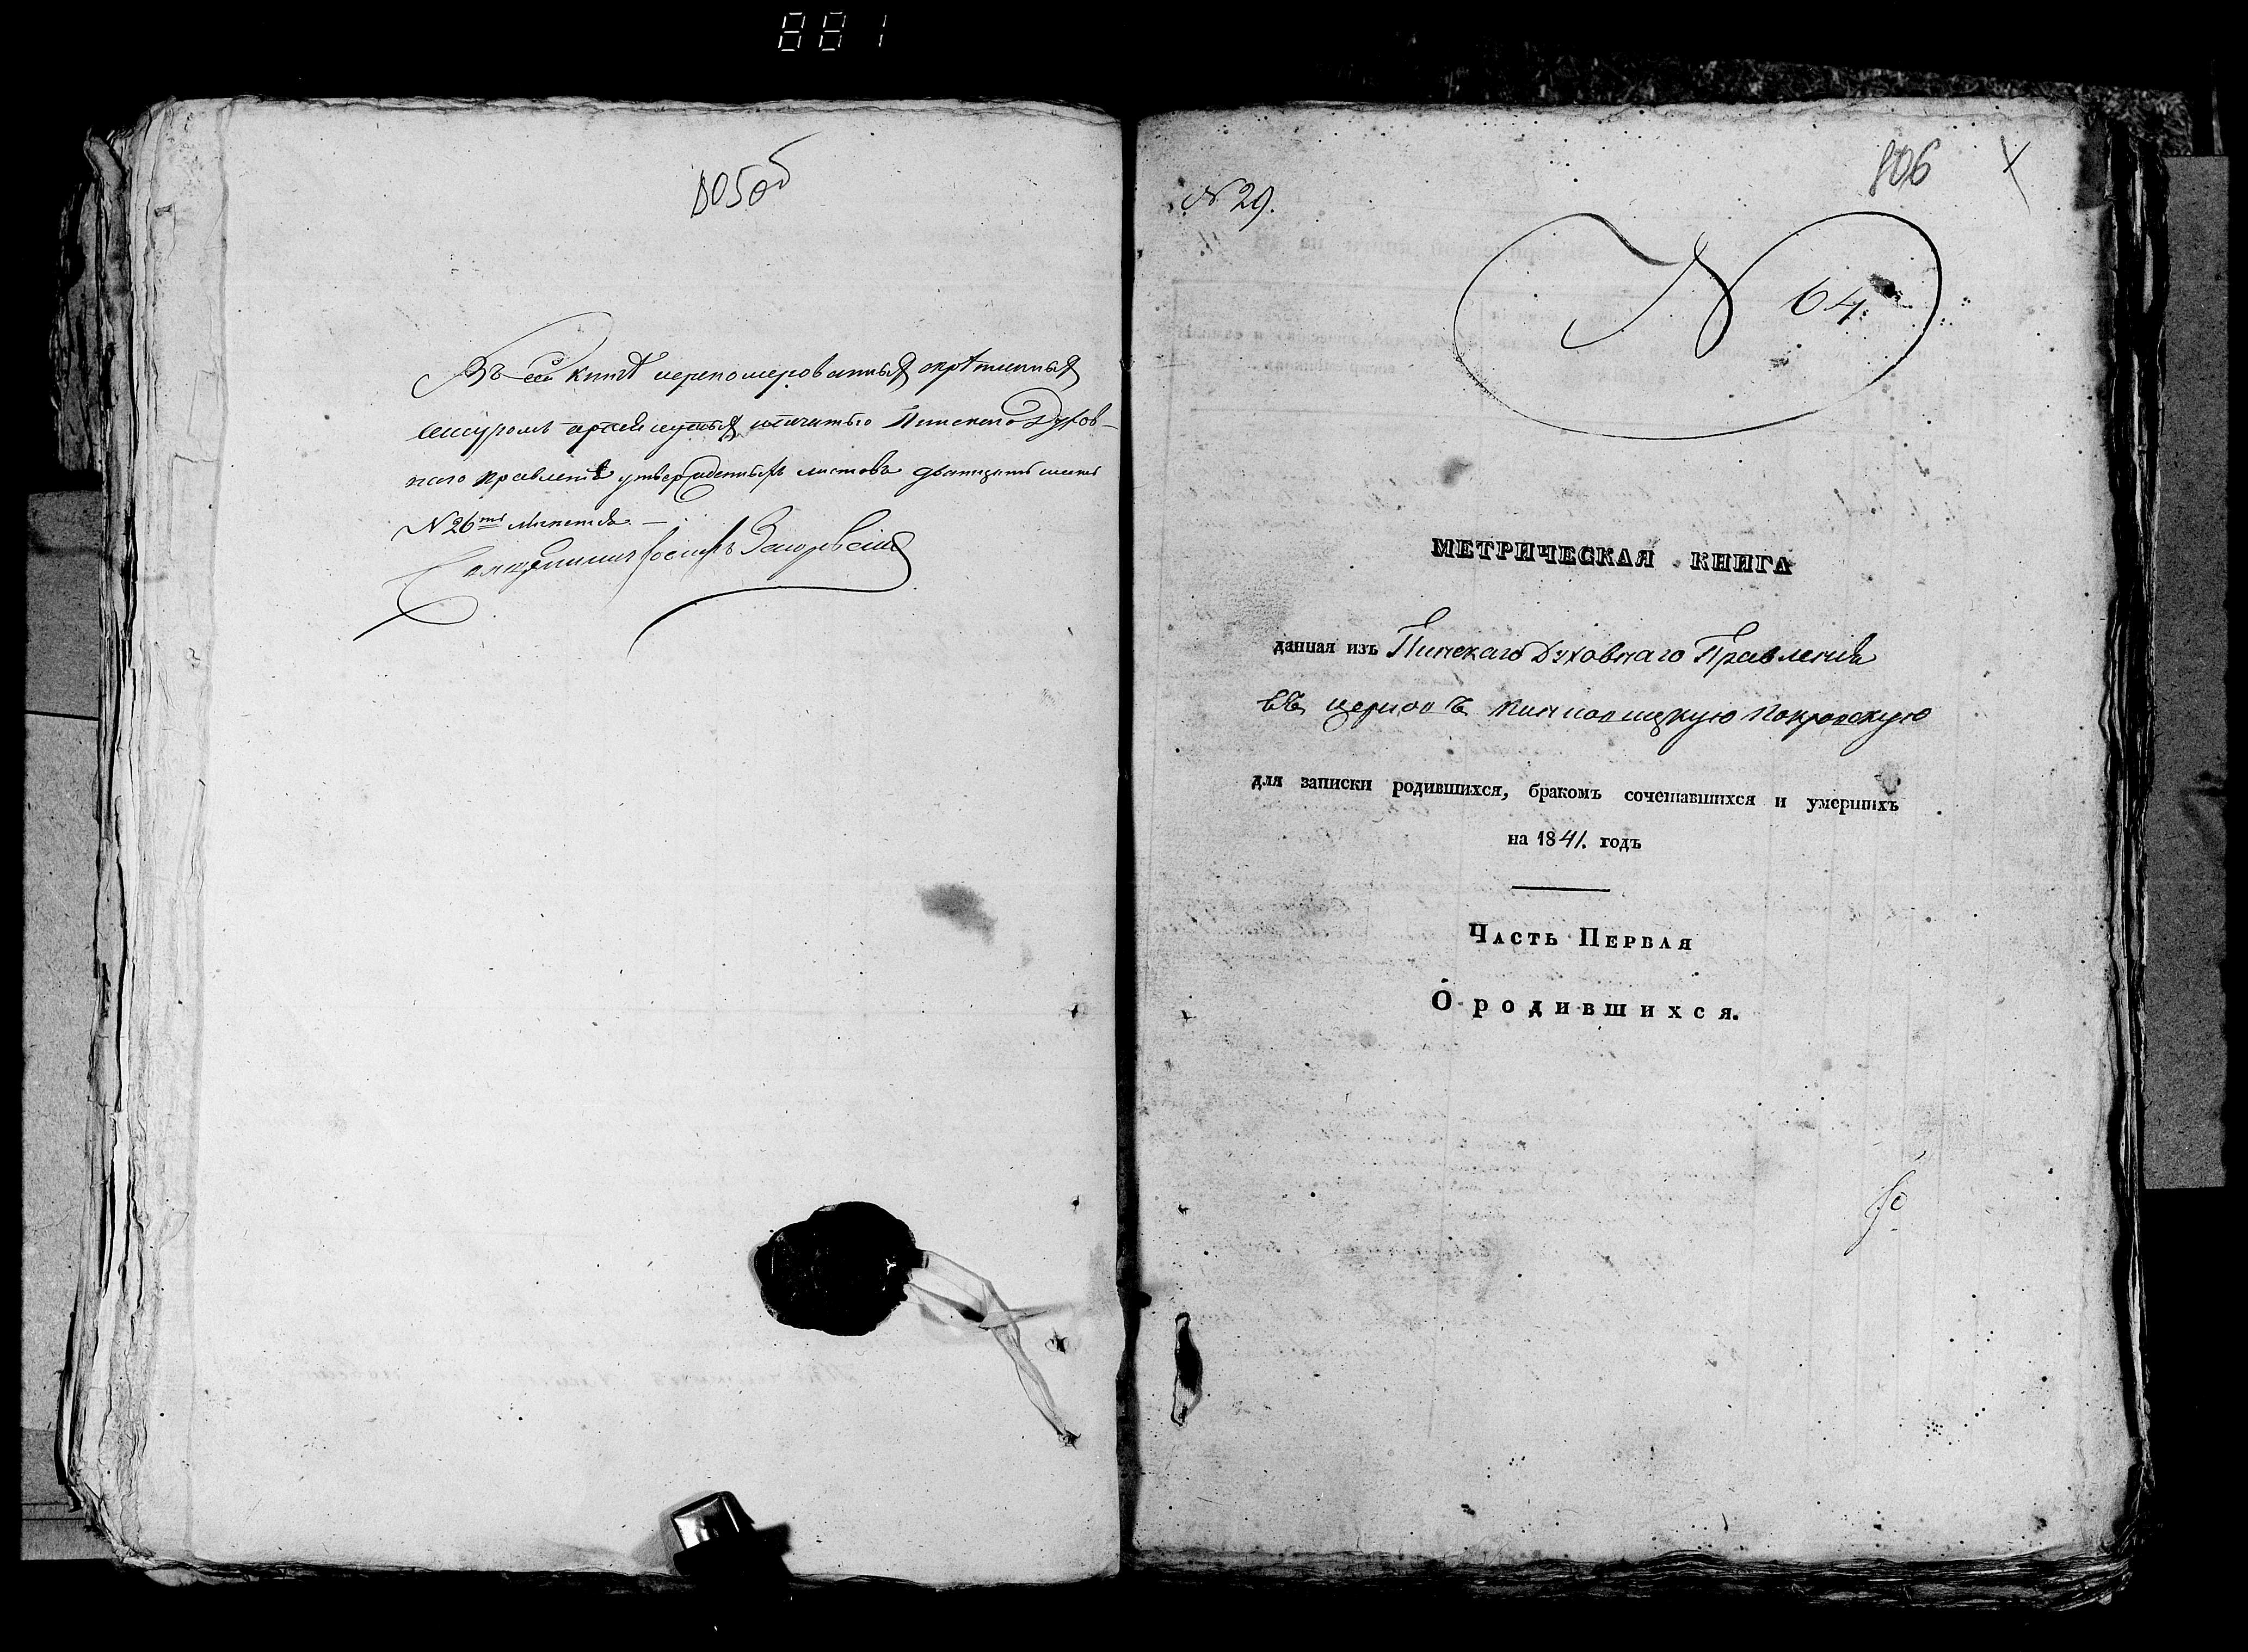 881
805об
Въ сей книгѣ перепомерованныхъ скрѣпленныхъ
шнуромъ и печатью Пинскаго Духов-
наго правленія утвержденныхъ листовъ двадцать шесть
N 26ть листовъ
Священникъ Іосифъ
806
N 29.
N 64.
МЕТРИЧЕСКАЯ КНИГА
данная изъ Пинскаго Духовнаго Правленія
въ церковь Покровскую
для записки родившихся, бракомъ сочетавшихся и умершихъ
на 1841. годъ
Часть Первая
О родившихся.